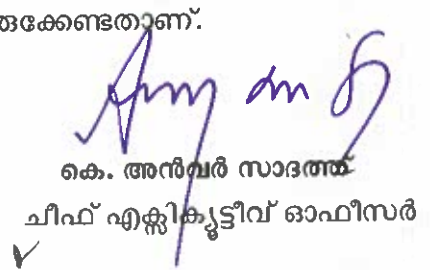 രുക്കേണ്ടതാണ്.
കെ. അൻവർ സാദത്ത്
ചീഫ് എക്സിക്യൂട്ടീവ് ഓഫീസർ